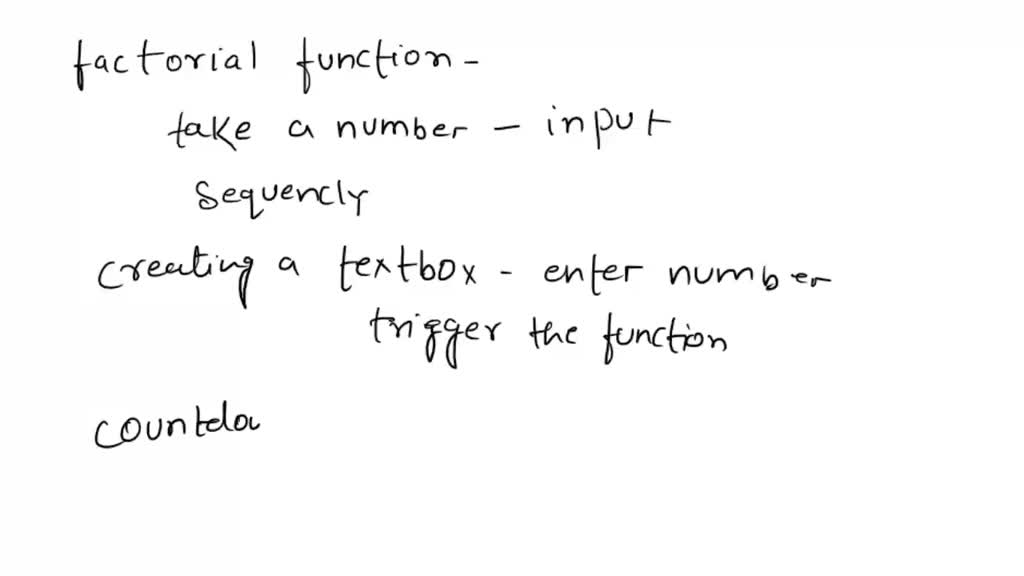 factorial function -
take a number - input
sequencly
creating a textbox - enter number
trigger the function
countdow